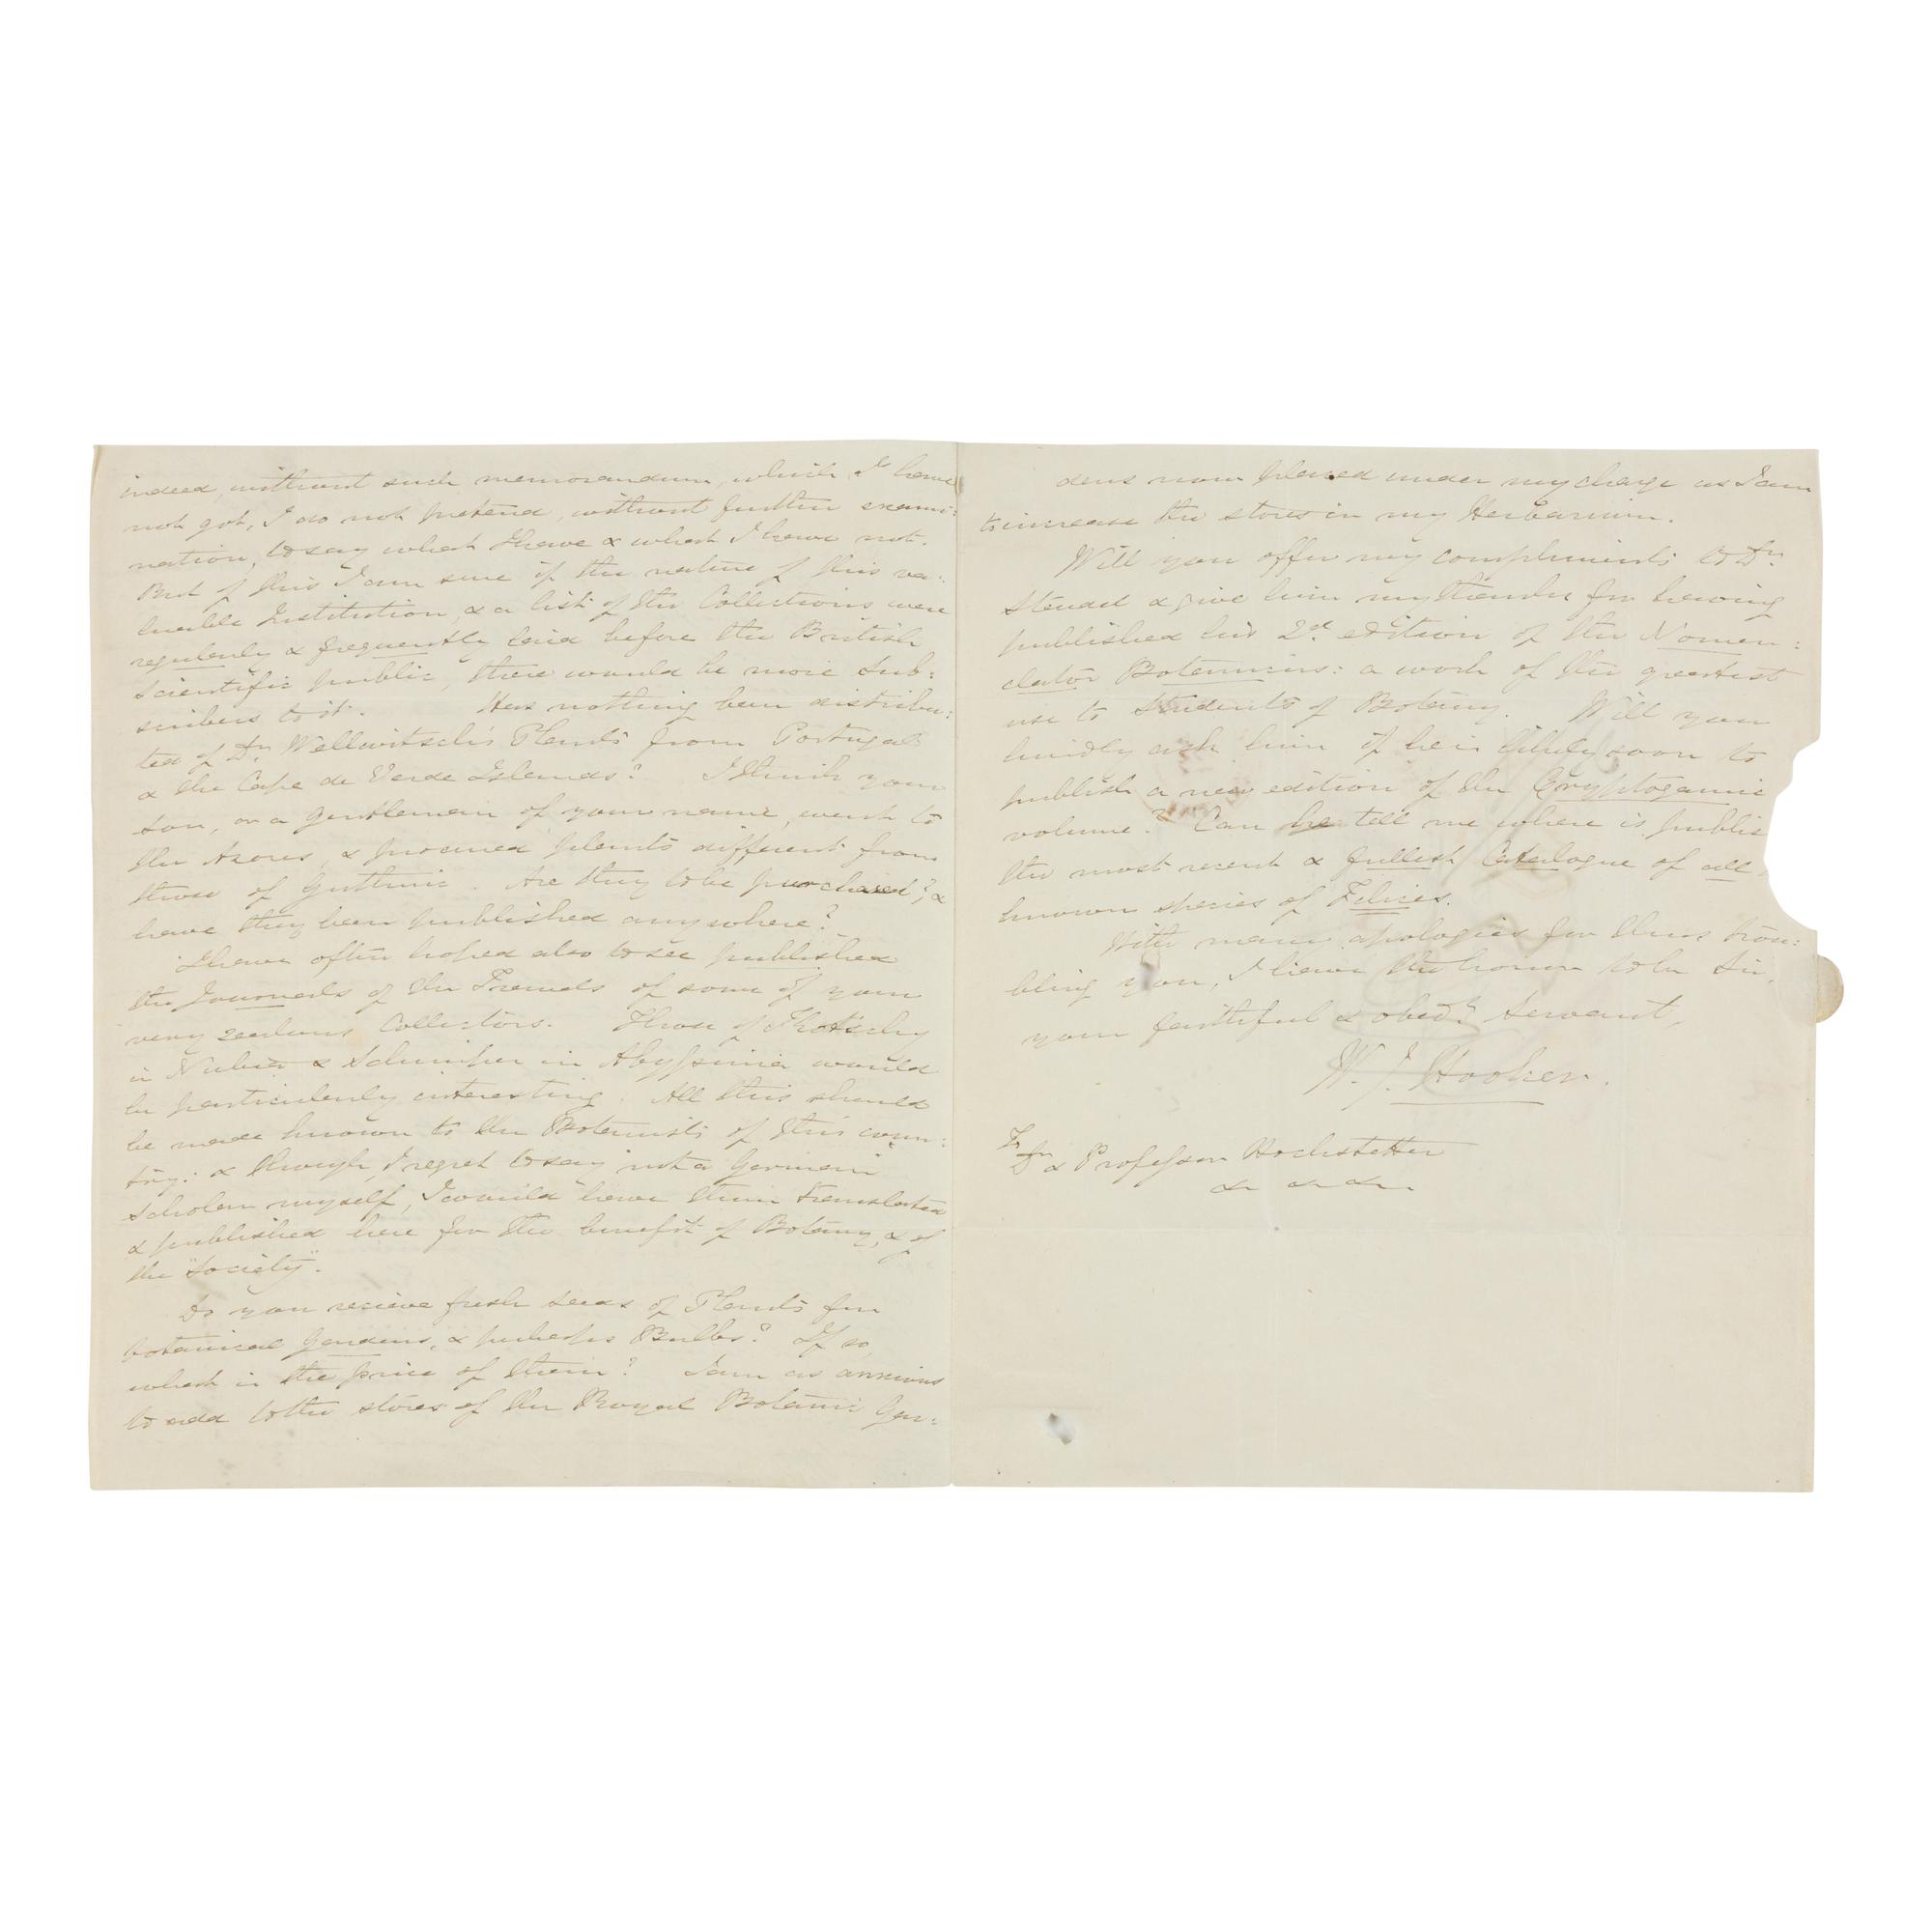 indeed, without such memorandum, which I have
not got, I do not pretend, without further exami:
nation, to say what I have & what I have not.
But of this I am sure if the nature of this va:
luable Institution, & a list of the Collections were
regularly & frequently laid before the British
scientific public, there would be more sub:
scribers to it. Has nothing been distribu:
ted of Dr. Wellwitsch's Plants from Portugal
& the Cape de Verde Islands? I think your
son, or a gentleman of your name, went to
the Azores, & procured plants different from
those of Guthnic. Are they to be purchased?, &
have they been published anywhere?
I have often hoped also to see published
the Journals of the Travels of some of your
very zealous Collectors. Those of Kotschy
in Nubia & Schimper in Abyssinia would
be particularly interesting. All this should
be made known to the Botanists of this coun:
try: & though, I regret to say not a German
scholar myself, I would have them translated
& published here for the benefit of Botany, & of
the "Society".
Do you recieve fresh seeds of Plants for
botanical Gardens, & perhaps Bulbs? If so,
what is the price of them? I am as anxious
to add to the stores of the Royal Botanic Gar:
dens now placed under my charge as I am
to increase the stores in my Herbarium.
Will you offer my compliments to Dr.
Steudel & give him my thanks for having
published his 2d. edition of the Nomen:
clator Botanicus: a work of the greatest
use to Students of Botany. Will you
kindly ask him if he is likely soon to
publish a new edition of the Cryptogamic
volume? Can he tell me where is publis
the most recent & fullest Catalogue of all
known species of Filices.
With many apologies for thus trou:
bling you, I have the honor to be Sir,
your faithful & obedt. Servant,
W. J. Hooker.
To
& Professor Hochstetter
&c &c &c.